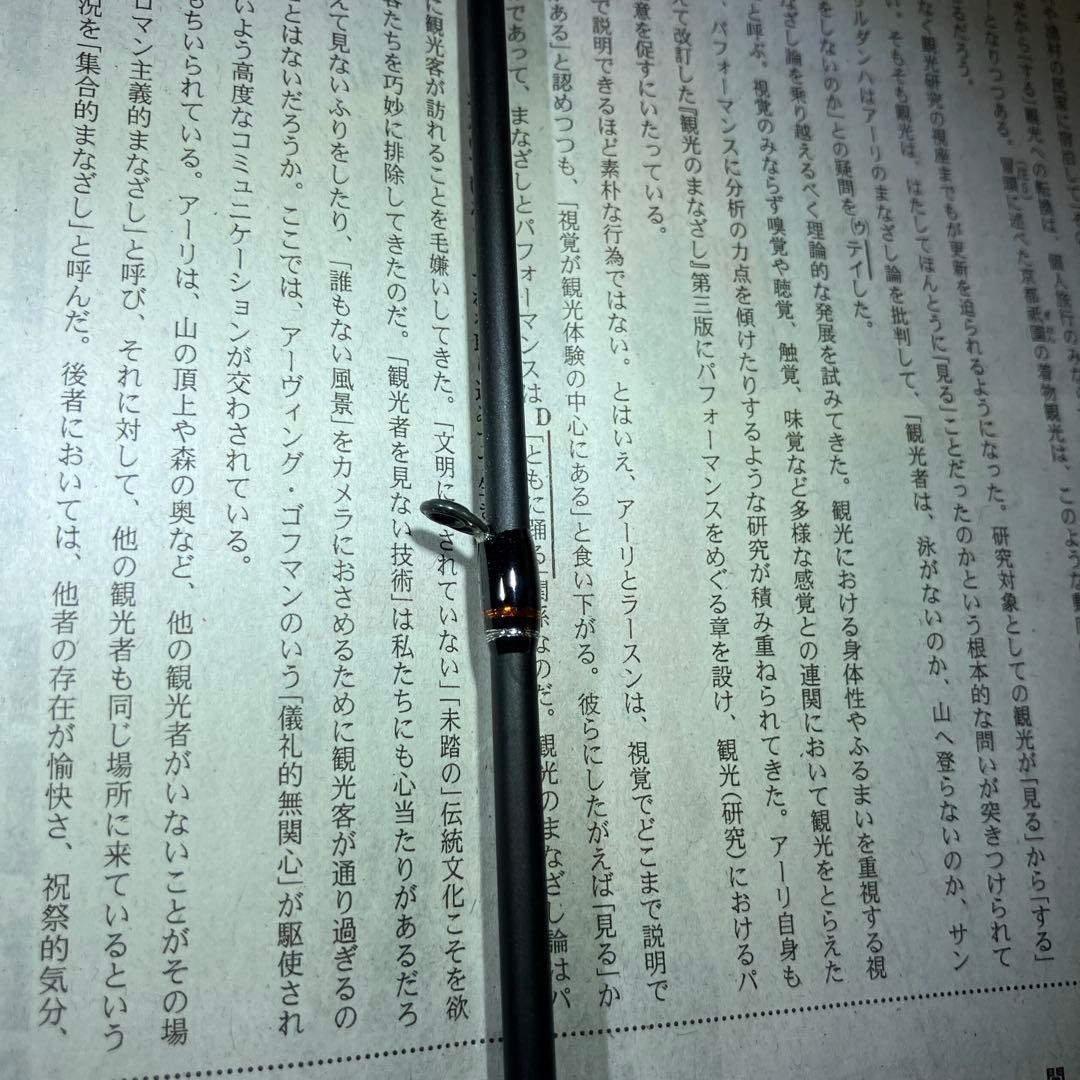 光から「する」観光への転換は、個人旅行のみな
となりつつある。冒頭に述べた京都祇園の着物観光は、このような
るだろう。
なく観光研究の視座までもが更新を迫られるようになった。研究対象としての観光が「見る」から「する」
い。そもそも観光は、はたしてほんとうに「見る」ことだったのかという根本的な問いが突きつけられて
ルダンハはアーリのまなざし論を批判して、「観光者は、泳がないのか、山へ登らないのか、サン
をしないのか」との疑問を(ウ)テイした。
なざし論を乗り越えるべく理論的な発展を試みてきた。観光における身体性やふるまいを重視する視
と呼ぶ。視覚のみならず嗅覚や聴覚、触覚、味覚など多様な感覚との連関において観光をとらえた
、パフォーマンスに分析の力点を傾けたりするような研究が積み重ねられてきた。アーリ自身も
えて改訂した『観光のまなざし』第三版にパフォーマンスをめぐる章を設け、観光(研究)におけるパ
意を促すにいたっている。
で説明できるほど素朴な行為ではない。とはいえ、アーリとラースンは、視覚でどこまで説明で
ある」と認めつつも、「視覚が観光体験の中心にある」と食い下がる。彼らにしたがえば「見る」か
であって、まなざしとパフォーマンスは D「ともに踊る 関係なのだ。観光のまなざし論はパ
に観光客が訪れることを毛嫌いしてきた。「文明に されていない」「未踏の」伝統文化こそを欲
客たちを巧妙に排除してきたのだ。「観光者を見ない技術」は私たちにも心当たりがあるだろ
えて見ないふりをしたり、「誰もない風景」をカメラにおさめるために観光客が通り過ぎるの
とはないだろうか。ここでは、アーヴィング・ゴフマンのいう「儀礼的無関心」が駆使され
いよう高度なコミュニケーションが交わされている。
もちいられている。アーリは、山の頂上や森の奥など、他の観光者がいないことがその場
ロマン主義的まなざし」と呼び、それに対して、他の観光者も同じ場所に来ているという
況を「集合的まなざし」と呼んだ。後者においては、他者の存在が愉快さ、祝祭的気分、
問